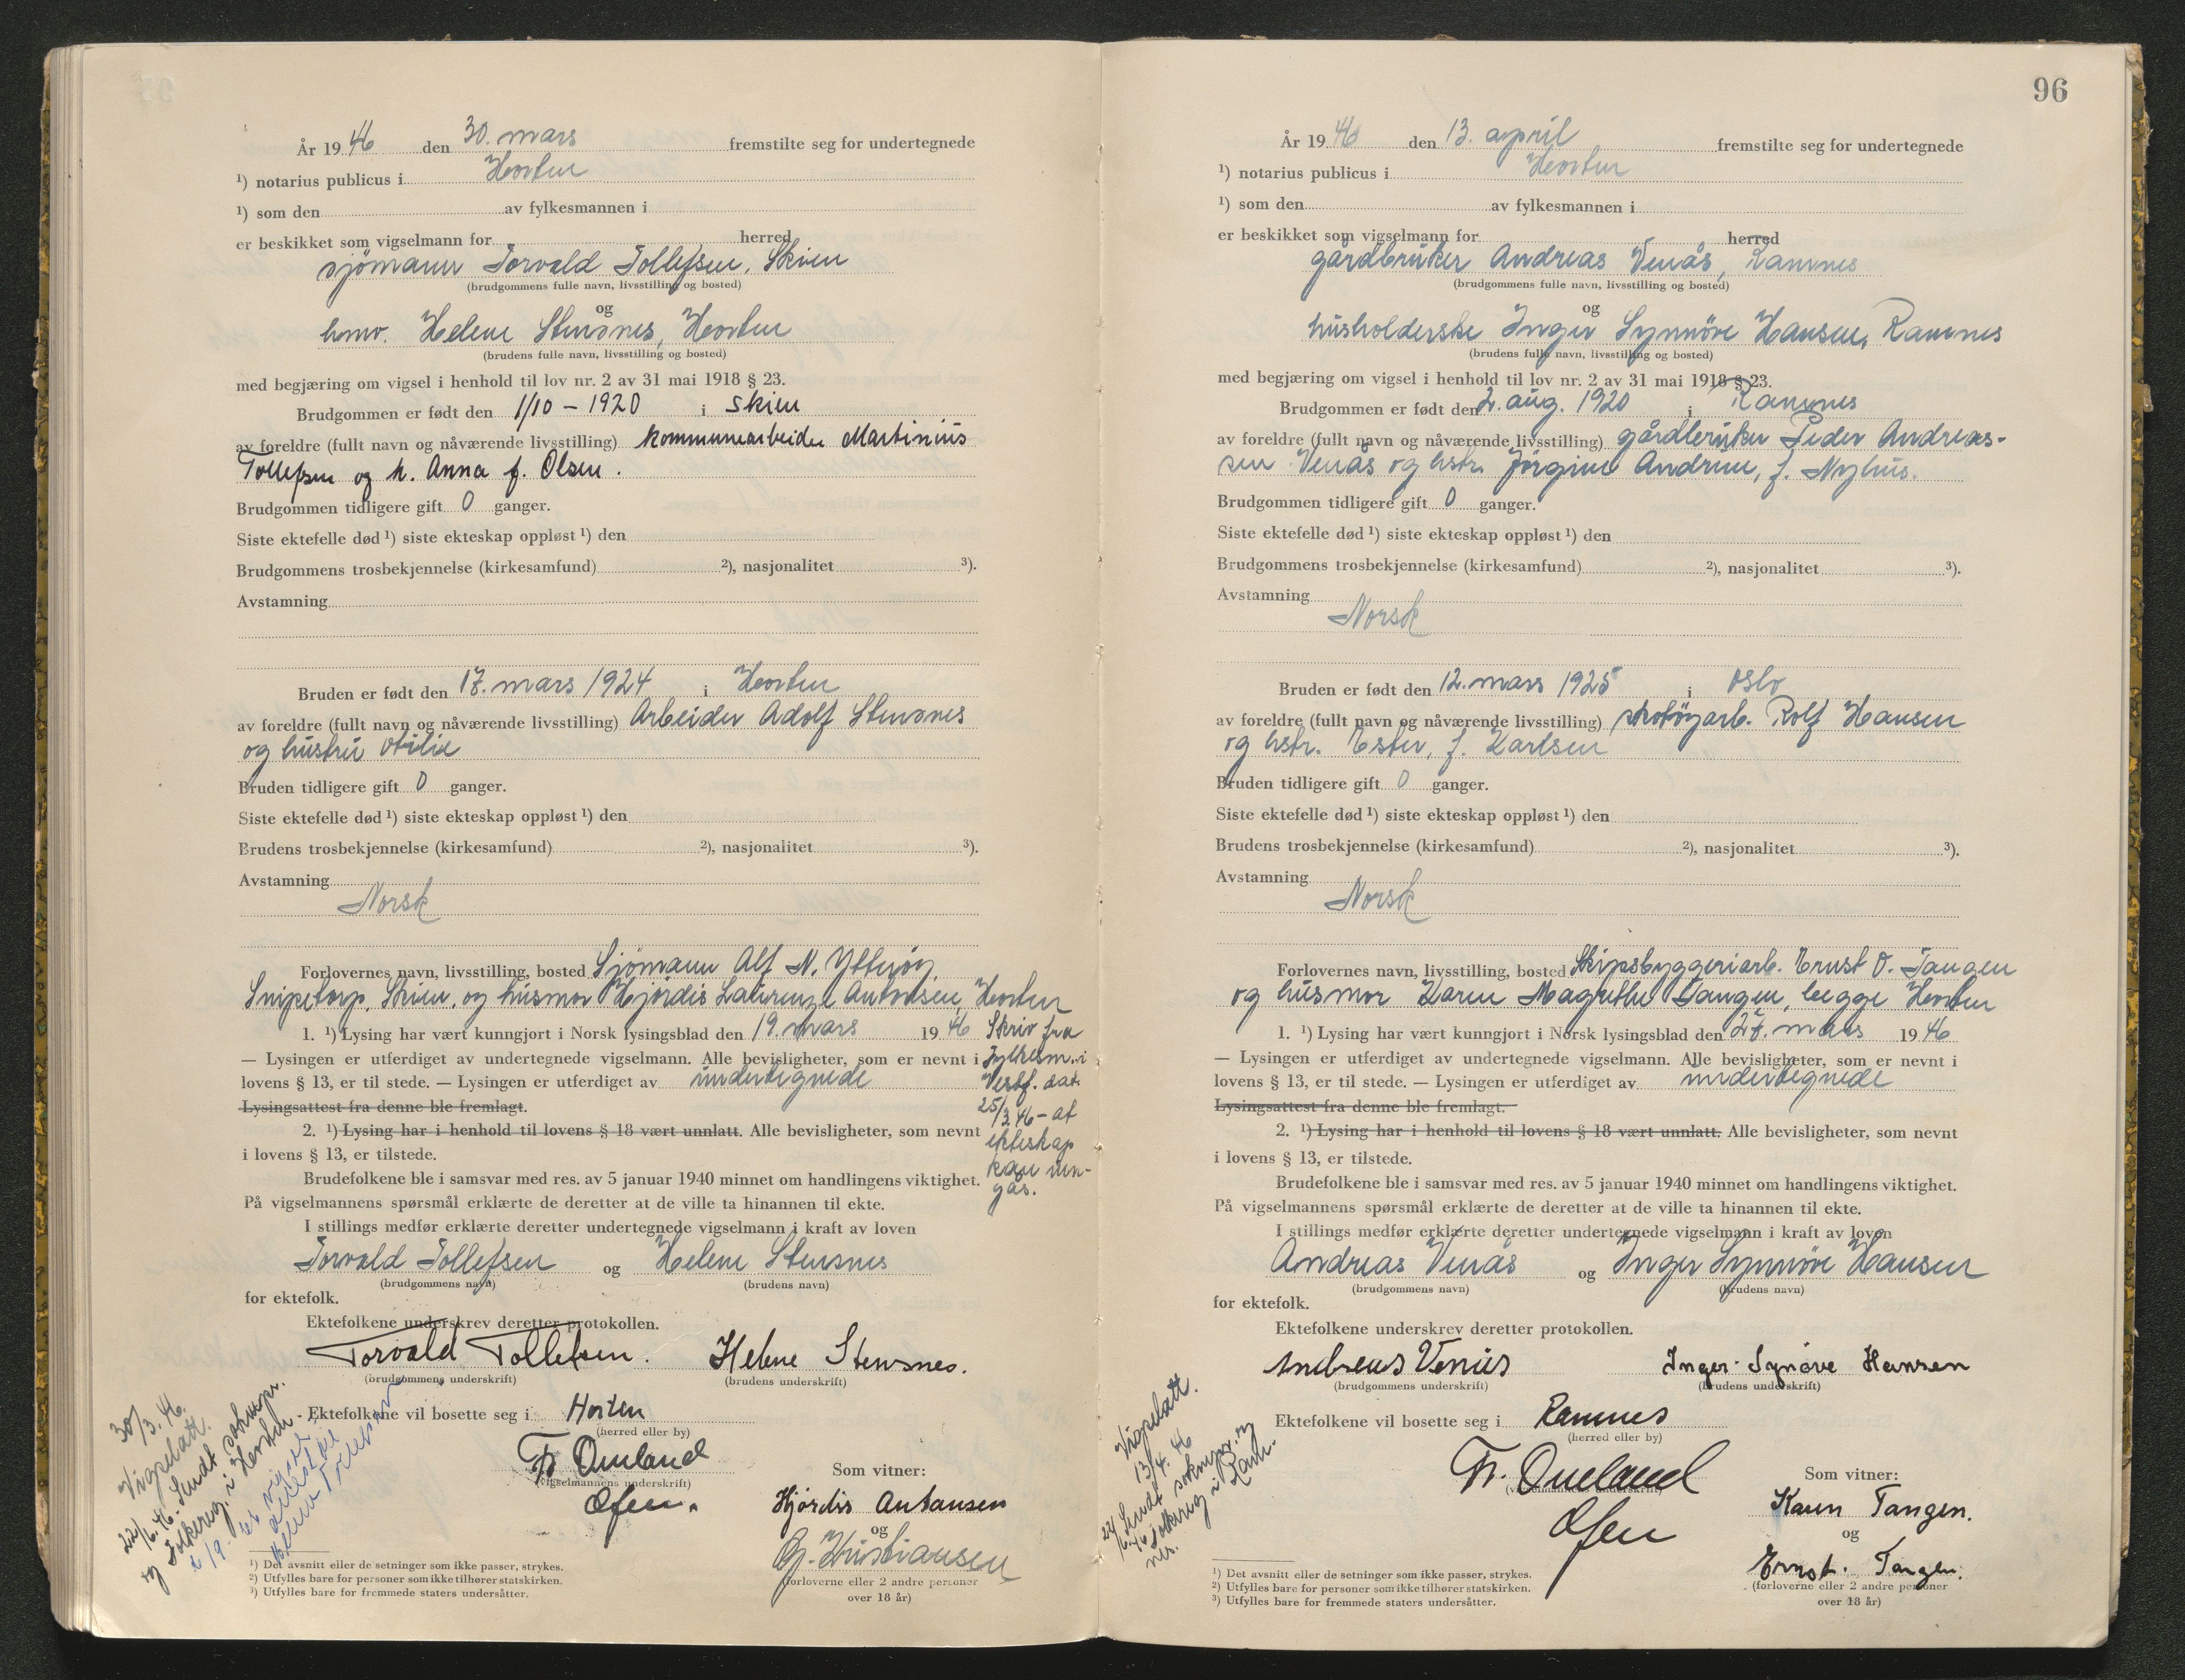 År 19 46 den 30. mars fremstilte seg for undertegnede
¹) notarius publicus i Horten
¹) som den av fylkesmannen i
er beskikket som vigselmann for herred
sjömann Torvald Tollefsen, Skien
(brudgommens fulle navn, livsstilling og bosted)
og
hmv. Helene Stensnes, Horten
(brudens fulle navn, livsstilling og bosted)
med begjæring om vigsel i henhold til lov nr. 2 av 31 mai 1918 § 23.
Brudgommen er født den 1/10 - 1920 i Skien
av foreldre (fullt navn og nåværende livsstilling) kommunearbeider Martinius
Tollefsen og h. Anna f. Olsen.
Brudgommen tidligere gift 0 ganger.
Siste ektefelle død ¹) siste ekteskap oppløst ¹) den
Brudgommens trosbekjennelse (kirkesamfund) ²), nasjonalitet ³).
Avstamning
Bruden er født den 17. mars 1924 i Horten
av foreldre (fullt navn og nåværende livsstilling) Arbeider Adolf Stensnes
og hustru Otilie
Bruden tidligere gift 0 ganger.
Siste ektefelle død ¹) siste ekteskap oppløst ¹) den
Brudens trosbekjennelse (kirkesamfund) ²), nasjonalitet ³).
Avstamning
Norsk
Forlovernes navn, livsstilling, bosted Sjömann Alf N. Ytterøy,
Snipetorp, Skien, og husmor Hjördis Laurenze Antonsen, Horten
1. ¹) Lysing har vært kunngjort i Norsk lysingsblad den 19. mars 19 46
— Lysingen er utferdiget av undertegnede vigselmann. Alle bevisligheter, som er nevnt i
lovens § 13, er til stede. — Lysingen er utferdiget av undertegnede
Lysingsattest fra denne ble fremlagt.
2. ¹) Lysing har i henhold til lovens § 18 vært unnlatt. Alle bevisligheter, som nevnt
i lovens § 13, er tilstede.
Skriv fra
fylkesm. i
Vestf. dat.
25/3 46 - at
ekteskap
kan inn-
gås.
Brudefolkene ble i samsvar med res. av 5 januar 1940 minnet om handlingens viktighet.
På vigselmannens spørsmål erklærte de deretter at de ville ta hinannen til ekte.
I stillings medfør erklærte deretter undertegnede vigselmann i kraft av loven
Torvald Tollefsen og Helene Stensnes
(brudgommens navn) (brudens navn)
for ektefolk.
Ektefolkene underskrev deretter protokollen.
Torvald Tollefsen. Helene Stensnes.
(brudgommens underskrift) (brudens underskrift)
Ektefolkene vil bosette seg i Horten
(herred eller by)
Fr. Oueland
(vigselmannens underskrift)
Som vitner:
Hjørdis Antonsen
og
Kristiansen
(forloverne eller 2 andre personer
over 18 år)
30/3. 46.
Vigselatt.
22/6. 46. Sendt soknepr.
og folkereg. i Horten.
¹) Det avsnitt eller de setninger som ikke passer, strykes.
²) Utfylles bare for personer som ikke tilhører statskirken.
³) Utfylles bare for fremmede staters undersåtter.
96
År 19 46 den 13. april fremstilte seg for undertegnede
¹) notarius publicus i Horten
¹) som den av fylkesmannen i
er beskikket som vigselmann for herred
gårdbruker Andreas Venås, Ramnes
(brudgommens fulle navn, livsstilling og bosted)
og
husholderske Inger Synnöve Hansen, Ramnes
(brudens fulle navn, livsstilling og bosted)
med begjæring om vigsel i henhold til lov nr. 2 av 31 mai 1918 § 23.
Brudgommen er født den 2. aug. 1920 i Ramnes
av foreldre (fullt navn og nåværende livsstilling) gårdbruker Peder Andreas-
sen Venås og hstr. Jörgine Andrine, f. Nyhus.
Brudgommen tidligere gift 0 ganger.
Siste ektefelle død ¹) siste ekteskap oppløst ¹) den
Brudgommens trosbekjennelse (kirkesamfund) ²), nasjonalitet ³).
Avstamning
Norsk
Bruden er født den 12. mars 1925 i Oslo
av foreldre (fullt navn og nåværende livsstilling) skotöyarb. Rolf Hansen
og hstr. Ester, f. Karlsen
Bruden tidligere gift 0 ganger.
Siste ektefelle død ¹) siste ekteskap oppløst ¹) den
Brudens trosbekjennelse (kirkesamfund) ²), nasjonalitet ³).
Avstamning
Norsk
Forlovernes navn, livsstilling, bosted Skipsbyggeriarb. Ernst O. Tangen
og husmor Karen Magrethe Tangen, begge Horten
1. ¹) Lysing har vært kunngjort i Norsk lysingsblad den 27. mars 19 46
— Lysingen er utferdiget av undertegnede vigselmann. Alle bevisligheter, som er nevnt i
lovens § 13, er til stede. — Lysingen er utferdiget av undertegnede
Lysingsattest fra denne ble fremlagt.
2. ¹) Lysing har i henhold til lovens § 18 vært unnlatt. Alle bevisligheter, som nevnt
i lovens § 13, er tilstede.
Brudefolkene ble i samsvar med res. av 5 januar 1940 minnet om handlingens viktighet.
På vigselmannens spørsmål erklærte de deretter at de ville ta hinannen til ekte.
I stillings medfør erklærte deretter undertegnede vigselmann i kraft av loven
Andreas Venås og Inger Synnöve Hansen
(brudgommens navn) (brudens navn)
for ektefolk.
Ektefolkene underskrev deretter protokollen.
Andreas Venås Inger Synöve Hansen
(brudgommens underskrift) (brudens underskrift)
Ektefolkene vil bosette seg i Ramnes
(herred eller by)
Fr. Oueland
Som vitner:
Karen Tangen.
og
Ernst. Tangen.
(forloverne eller 2 andre personer
over 18 år)
Vigselatt.
13/4. 46
22/6. 46 Sendt soknepr. og
folkereg i Ram-
nes.
¹) Det avsnitt eller de setninger som ikke passer, strykes.
²) Utfylles bare for personer som ikke tilhører statskirken.
³) Utfylles bare for fremmede staters undersåtter.